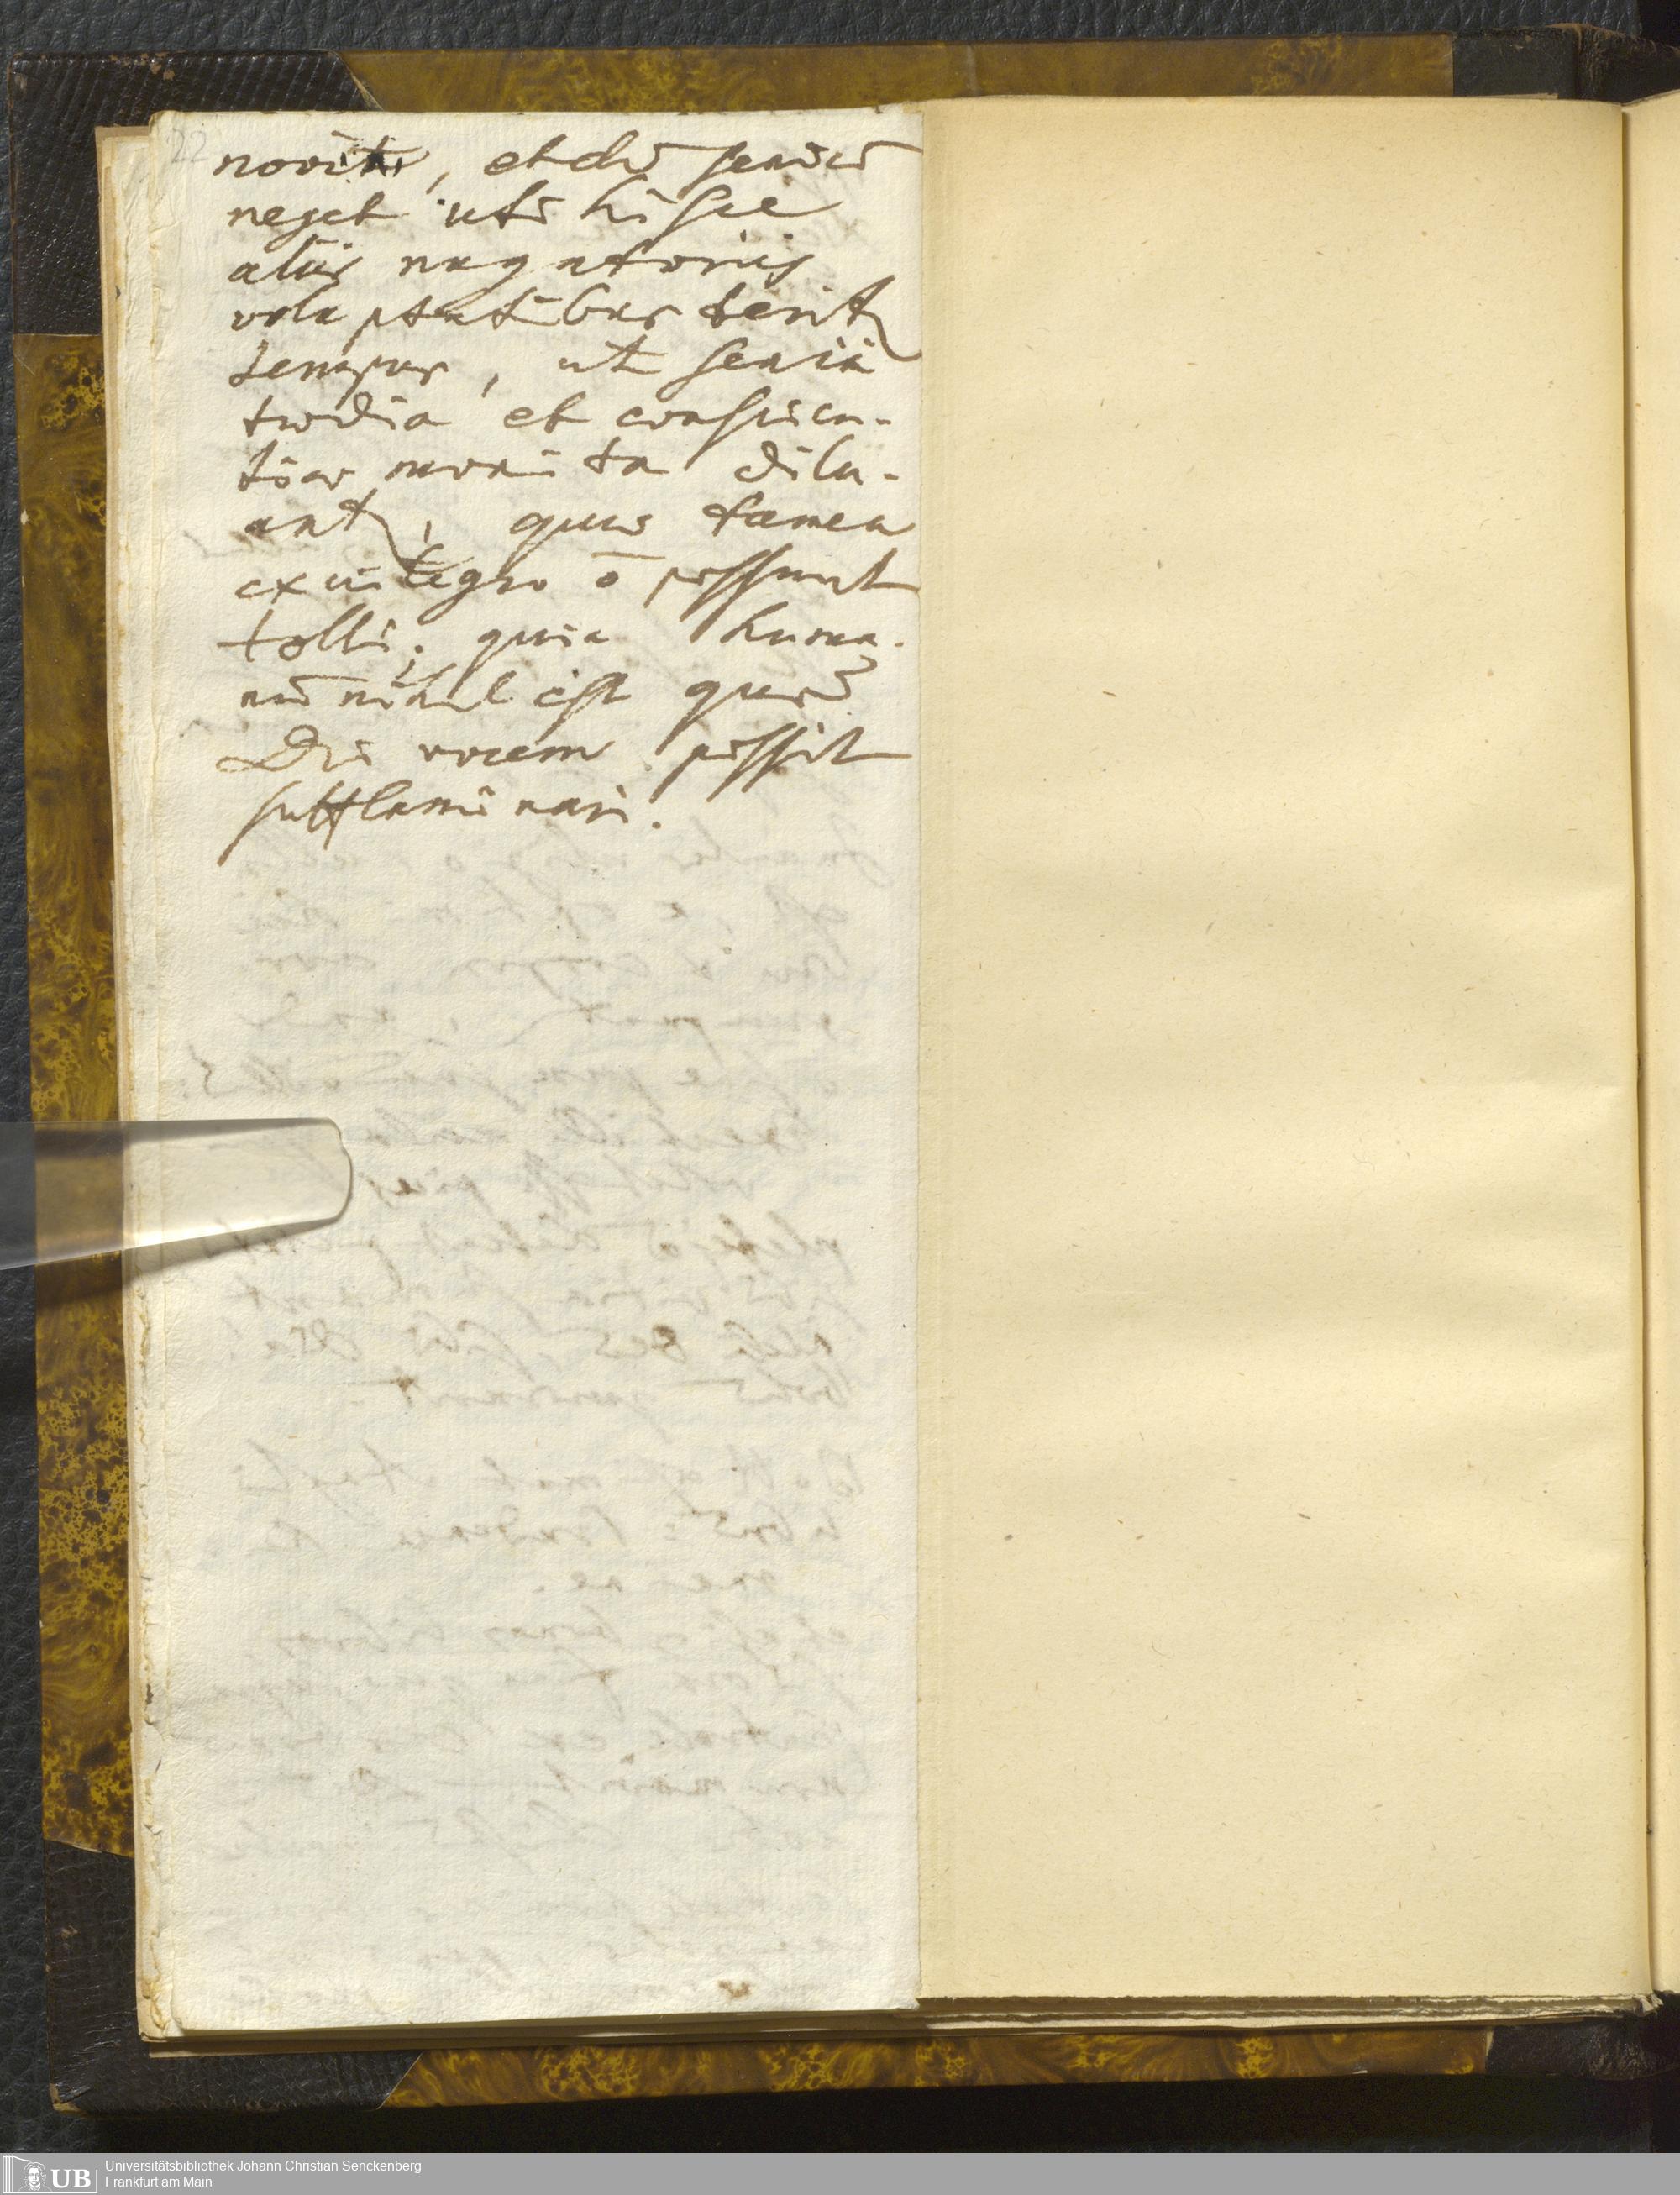 22
novit, et dū seriū
neget uti hisce
aliis nugatoriis
voluptatibus terit
tempus, ut seria
tædia et conscien-
tiae monita dilu-
ant, quae tamen
ex integro ō possunt
tolli; quia huma-
nū nihil est quod
Dei vocem possit
sufflaminari.
UB
Universitätsbibliothek Johann Christian Senckenberg
Frankfurt am Main